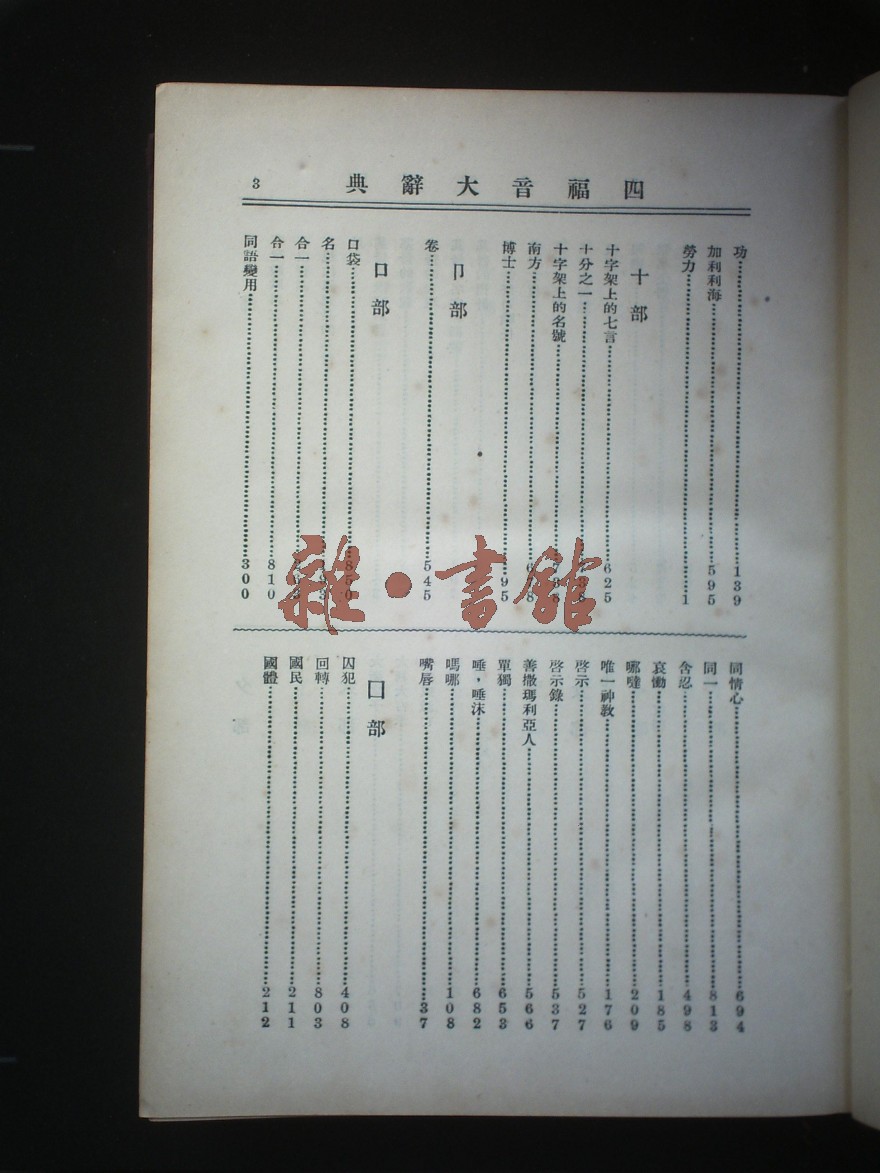 四福音大辭典 3
功 139
加利利海 595
勞力 1
十部
十字架上的七言 625
十分之一
十字架上的名號
南方
博士
卩部
卷 545
口部
口袋 850
名
合一
合一 810
同語變用 300
同情心 694
同一 813
含忍 498
哀慟 185
哪噠 209
唯一神教 176
啓示 527
啓示錄 537
善撒瑪利亞人 566
單獨 653
唾，唾沫 682
嗎哪 108
嘴唇 37
囗部
囚犯 408
回轉 803
國民 211
國體 212
雜·書館